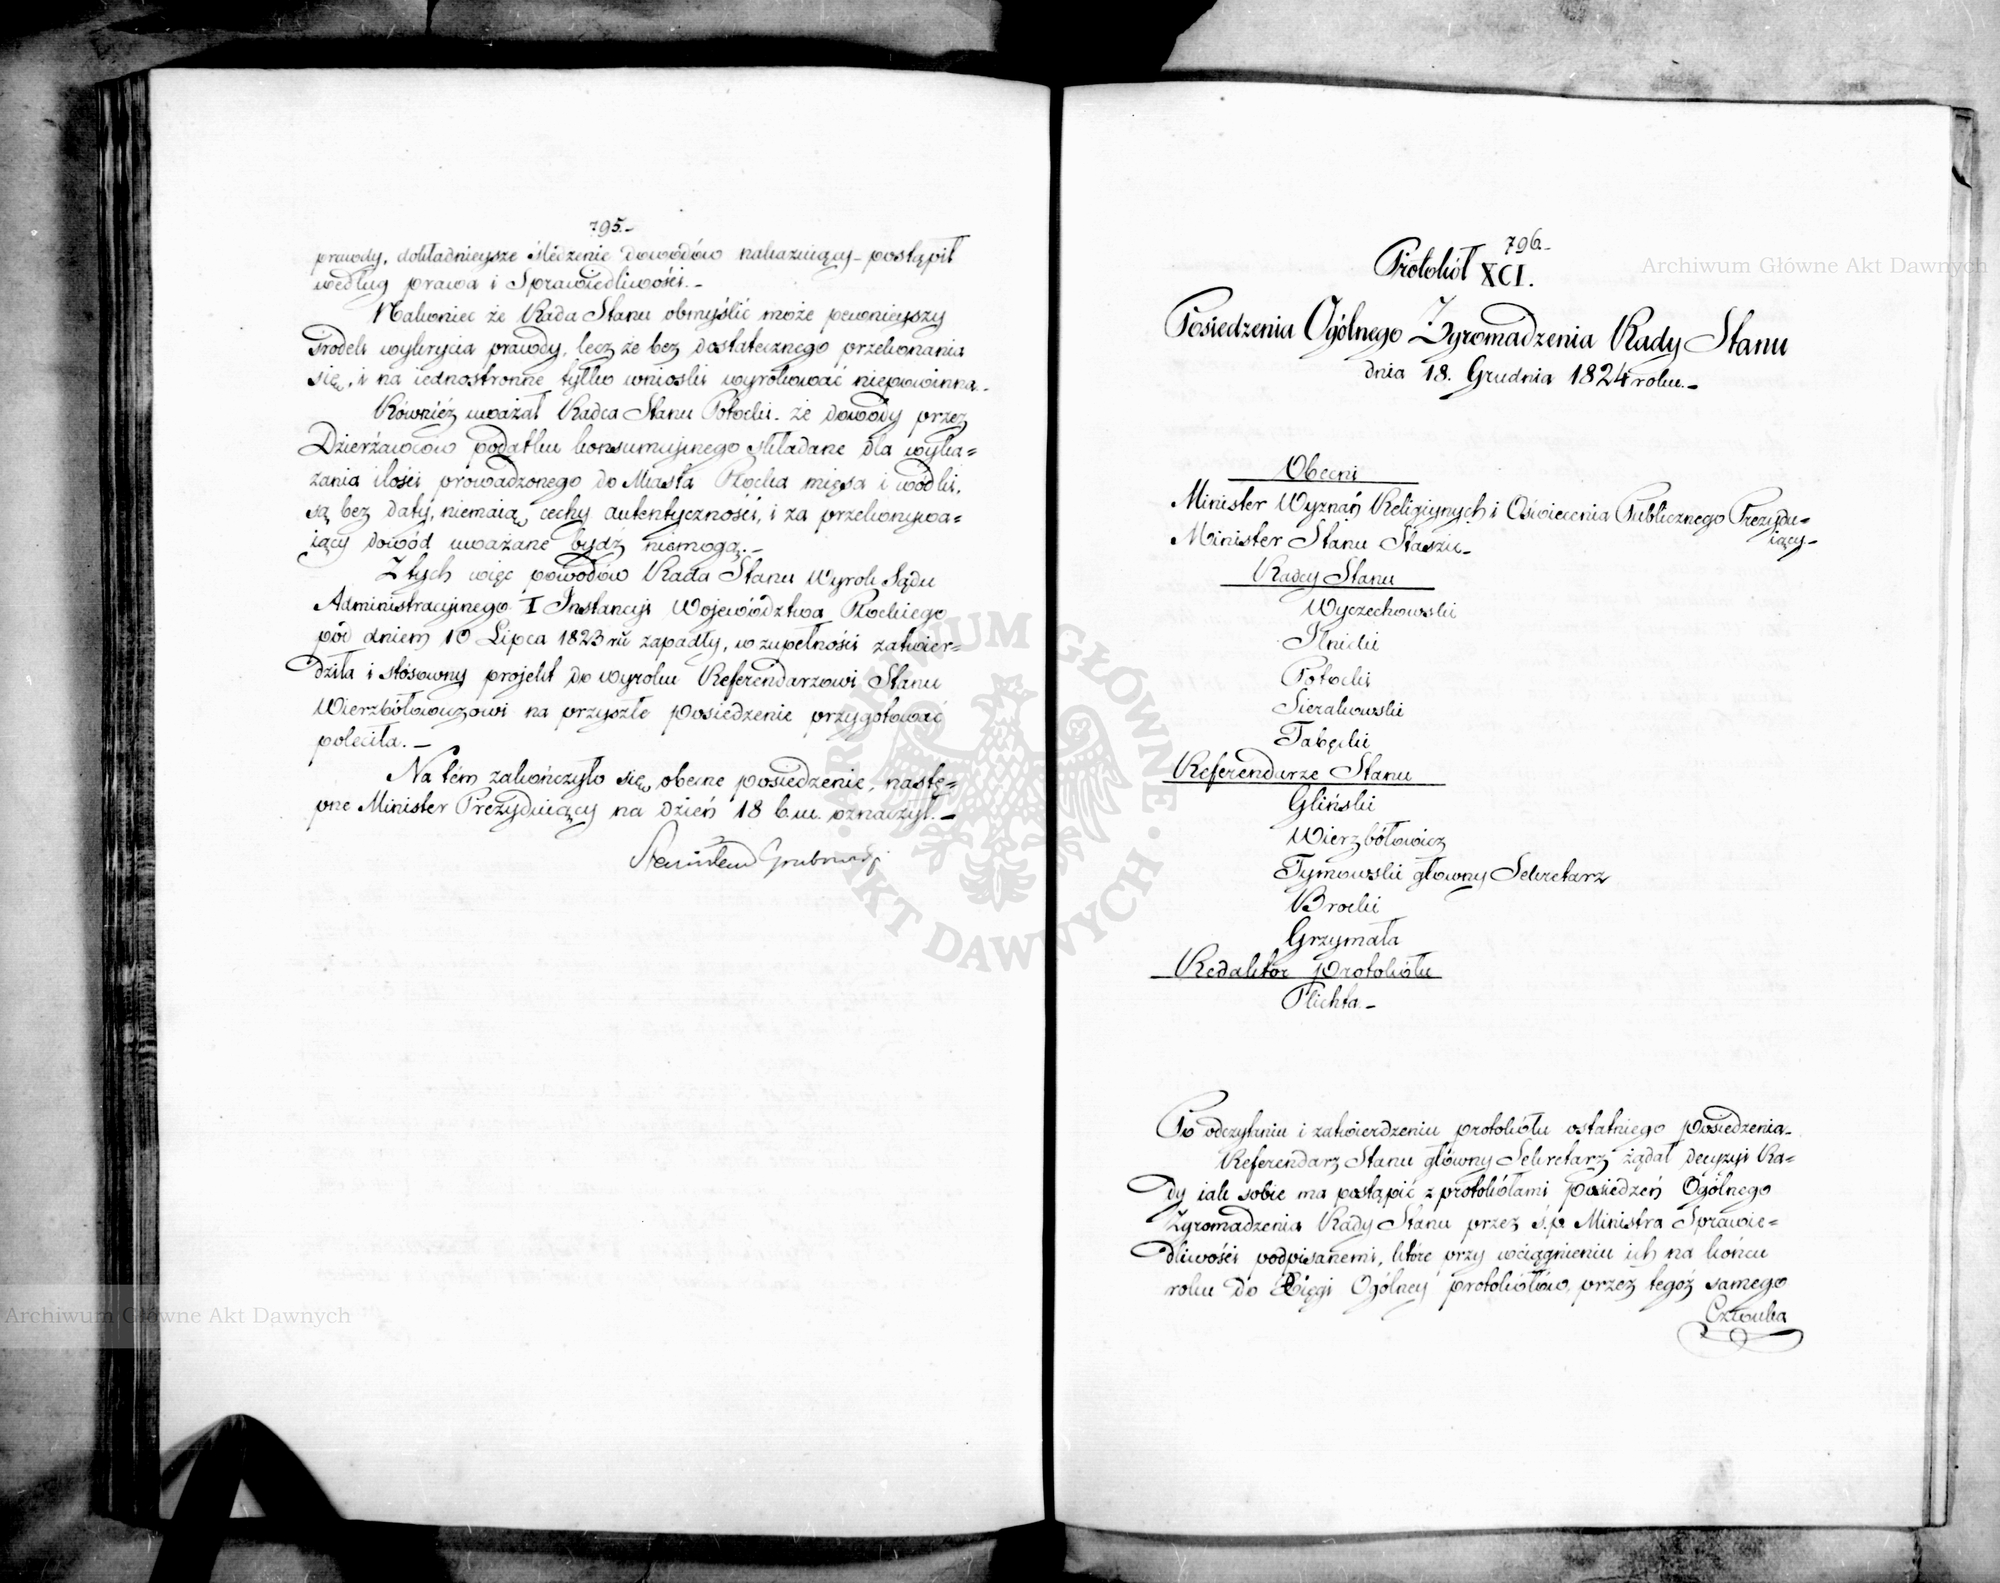 795.-
prawdy, dokładnieysze śledzenie dowodów nakazuiący - postąpił
według prawa i Sprawiedliwości. -
Nakoniec że Rada Stanu obmyślić może pewnieyszy
środek wykrycia prawdy, lecz że bez dostatecznego przekonania
się, i na iednostronne tylko wnioski wyrokować niepowinna. -
Również uważał Radca Stanu Potocki. że dowody przez
Dzierżawców podatku konsumcyjnego składane dla wyka=
zania ilości prowadzonego do Miasta Płocka mięsa i wódki,
są bez daty, niemaią cechy autentyczności, i za przekonywa=
iący dowód uważane bydz niemogą. -
Z tych więc powodów Rada Stanu Wyrok Sądu
Administracyjnego I Instancyi Województwa Płockiego
pod dniem 10 Lipca 1823 ru zapadły, w zupełności zatwier=
dziła i stósowny projekt do wyroku Referendarzowi Stanu
Wierzbołowiczowi na przyszłe posiedzenie przygotować
poleciła. -
Na tém zakończyło się obecne posiedzenie, nastę=
pne Minister Prezyduiący na dzień 18 b. m. oznaczył. -
Stanisław Grabowski
796.-
Protokół XCI.
Posiedzenia Ogólnego Zgromadzenia Rady Stanu
dnia 18. Grudnia 1824 roku. -
Obecni
Minister Wyznań Religijnych i Oświecenia Publicznego Prezydu=
iący -
Minister Stanu Staszic -
Radcy Stanu
Wyczechowski
Ilnicki
Potocki
Sierakowski
Tabęcki
Referendarze Stanu
Gliński
Wierzbołowicz
Tymowski główny Sekretarz
Brocki
Grzymała
Redaktor protokółu
Plichta. -
Po odczytaniu i zatwierdzeniu protokółu ostatniego posiedzenia -
Referendarz Stanu główny Sekretarz żądał decyzyi Ra=
dy iak sobie ma postąpić z protokółami posiedzeń Ogólnego
Zgromadzenia Rady Stanu przez ś.p. Ministra Sprawie=
dliwości podpisanemi, które przy wciągnieniu ich na końcu
roku do Xięgi Ogólney protokółów, przez tegoż samego
Członka
Archiwum Główne Akt Dawnych
Archiwum Główne Akt Dawnych
ARCHIWUM GŁÓWNE AKT DAWNYCH